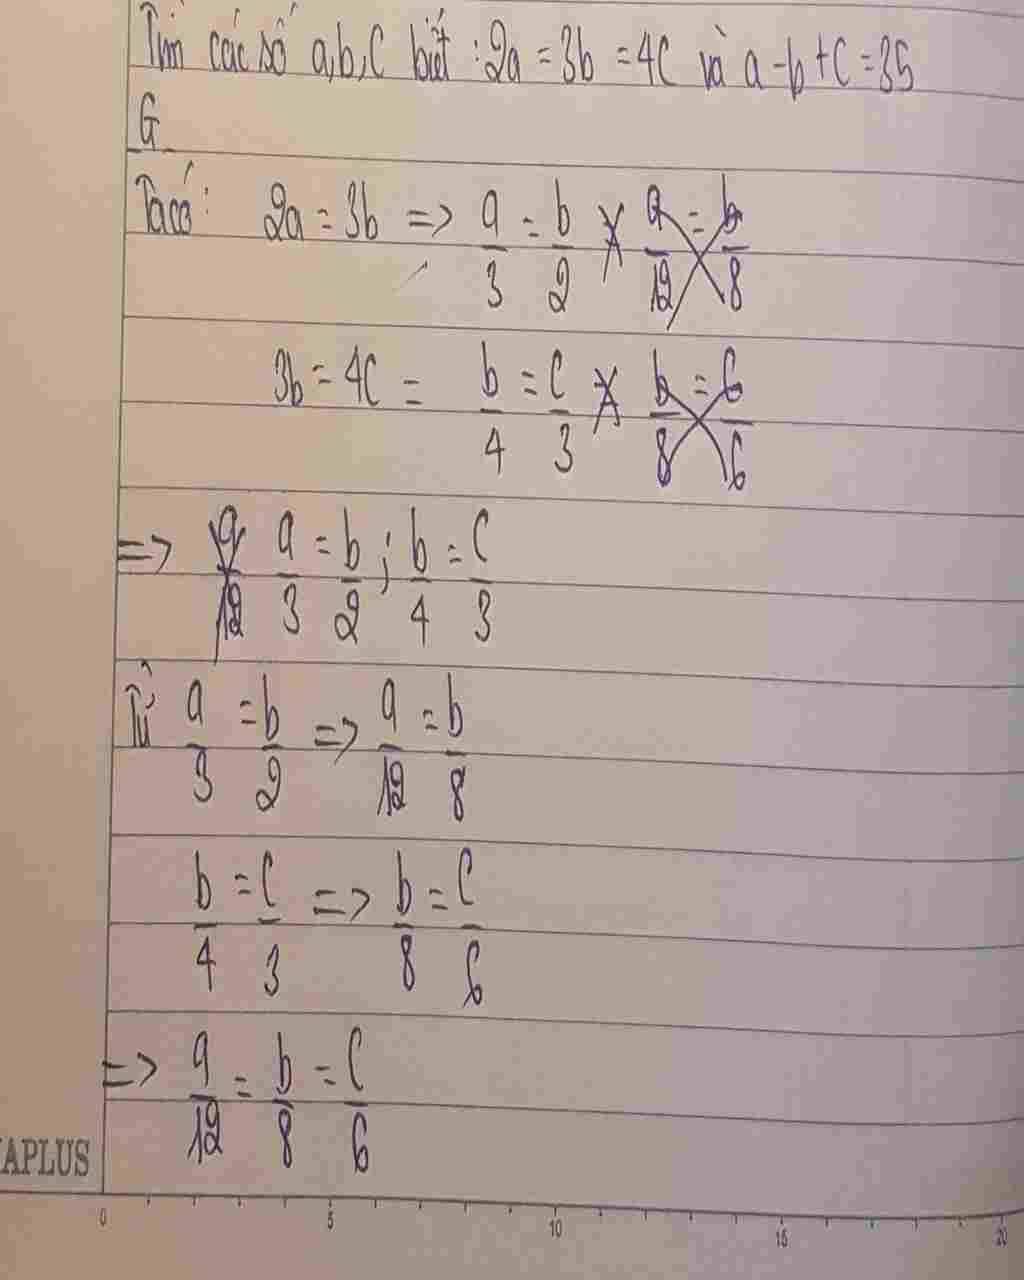 Tìm các số a,b,c biết : 2a = 3b = 4c và a - b + c = 35
G
Ta có : 2a = 3b => a/3 = b/2 a/12 = b/8
3b = 4c = b/4 = c/3 b/8 = c/6
=> a/12 a/3 = b/2 ; b/4 = c/3
Từ a/3 = b/2 => a/12 = b/8
b/4 = c/3 => b/8 = c/6
=> a/12 = b/8 = c/6
APLUS
0 5 10 15 20